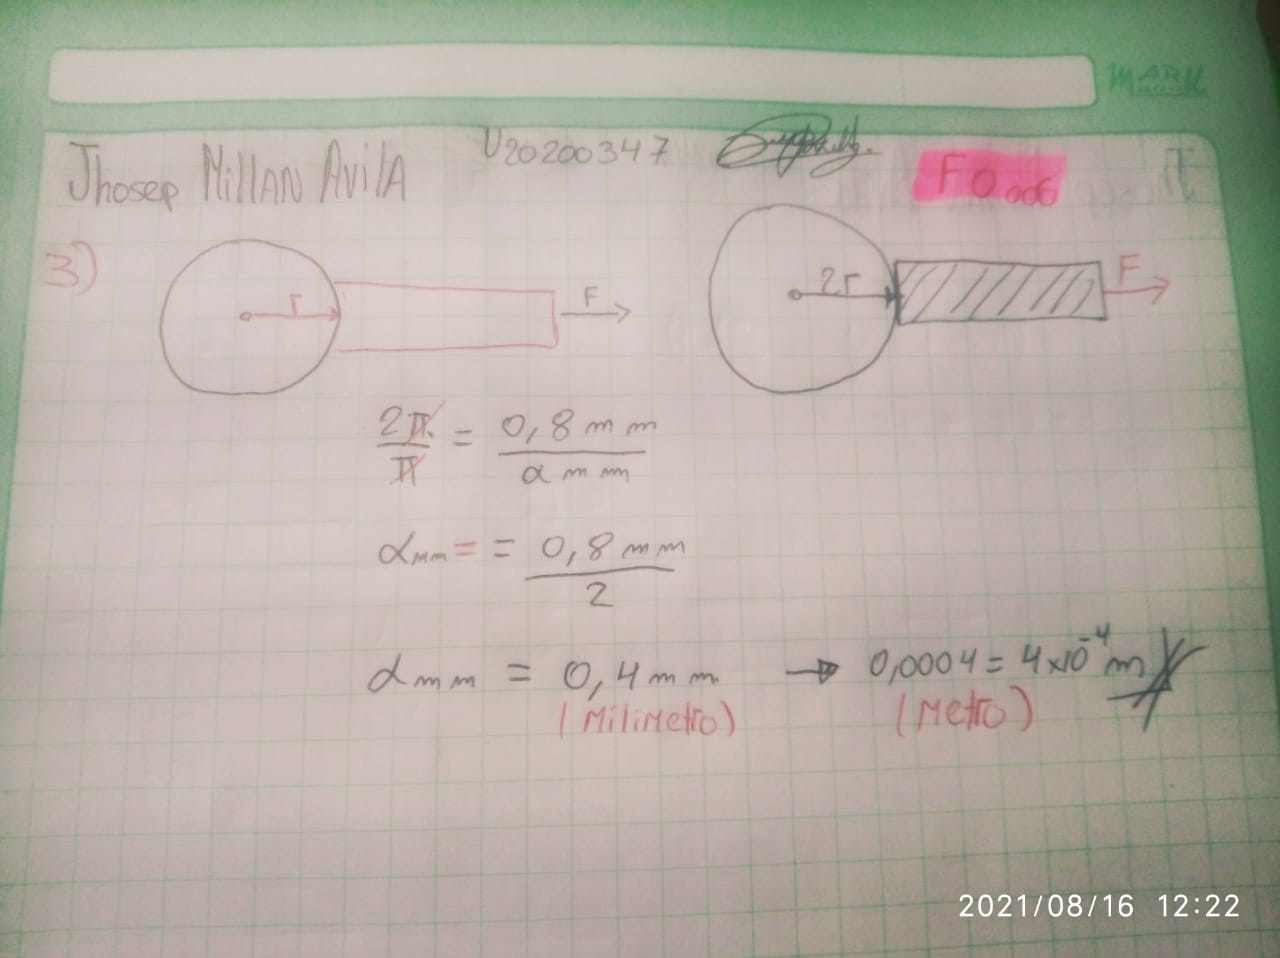 MARK
Jhosep Millan Avila U20200347 F0.006
3)
r F 2r F
2π/π = 0,8 mm/α mm
α mm = = 0,8 mm/2
α mm = 0,4 mm → 0,0004 = 4x10⁻⁴ m
(Milimetro) (Metro)
2021/08/16 12:22